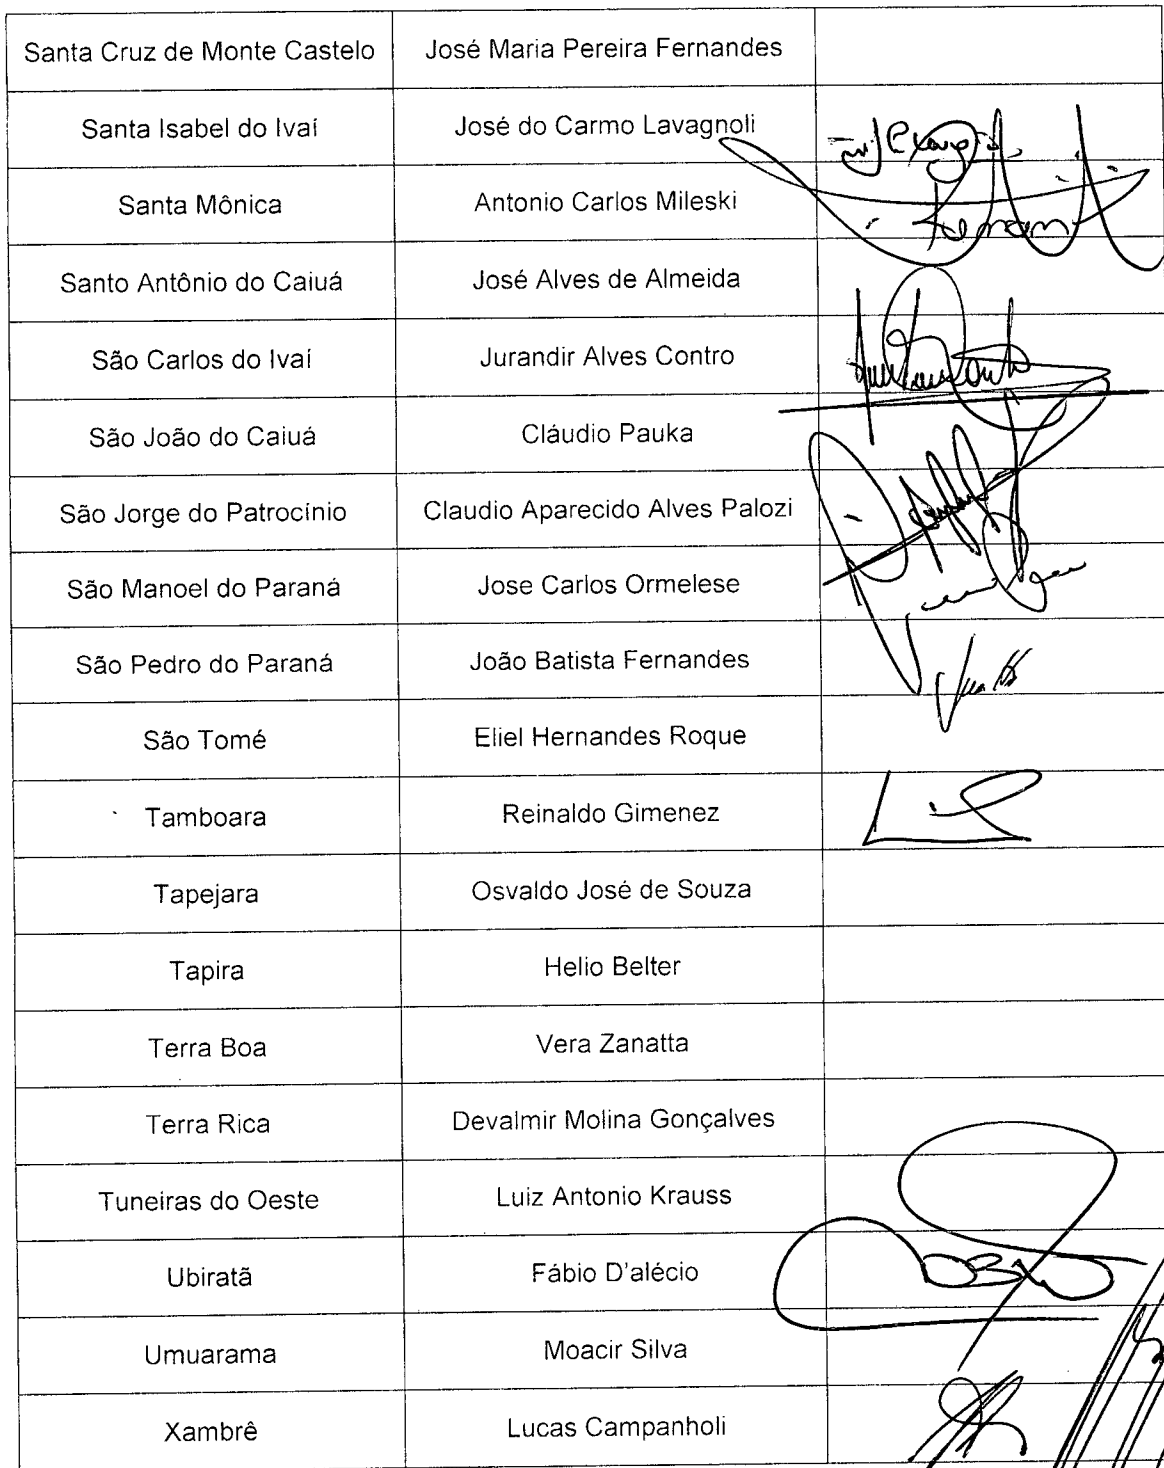 Santa Cruz de Monte Castelo José Maria Pereira Fernandes
Santa Isabel do Ivaí José do Carmo Lavagnoli
Santa Mônica Antonio Carlos Mileski
Santo Antônio do Caiuá José Alves de Almeida
São Carlos do Ivaí Jurandir Alves Contro
São João do Caiuá Cláudio Pauka
São Jorge do Patrocínio Claudio Aparecido Alves Palozi
São Manoel do Paraná Jose Carlos Ormelese
São Pedro do Paraná João Batista Fernandes
São Tomé Eliel Hernandes Roque
Tamboara Reinaldo Gimenez
Tapejara Osvaldo José de Souza
Tapira Helio Belter
Terra Boa Vera Zanatta
Terra Rica Devalmir Molina Gonçalves
Tuneiras do Oeste Luiz Antonio Krauss
Ubiratã Fábio D'alécio
Umuarama Moacir Silva
Xambrê Lucas Campanholi